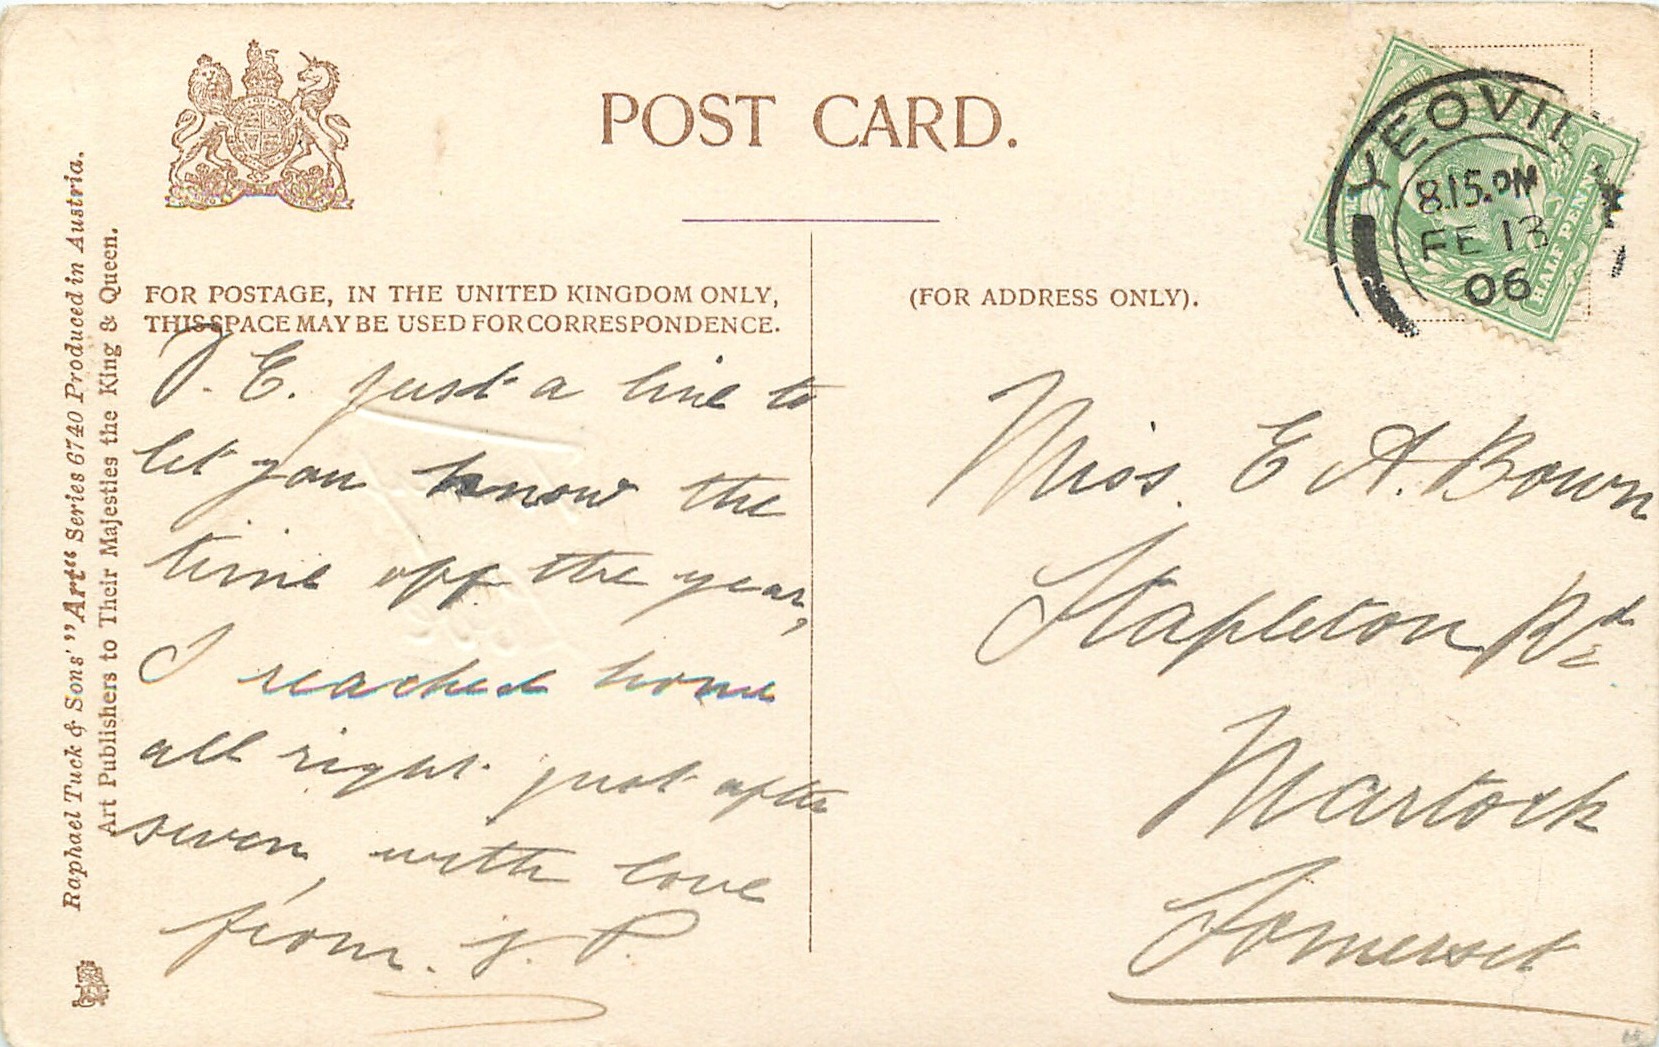 POST CARD.
FOR POSTAGE, IN THE UNITED KINGDOM ONLY,
THIS SPACE MAY BE USED FOR CORRESPONDENCE.
(FOR ADDRESS ONLY).
Raphael Tuck & Sons' "Art" Series 6740 Produced in Austria.
Art Publishers to Their Majesties the King & Queen.
YEOVIL
8.15.PM
FE 13
06
HALF PENNY
D. E. just a line to
let you know the
time off the year,
I reached home
all right just after
seven, with love
from. J. P.
Miss. E A. Bown
Stapleton Rd
Martock
Somerset